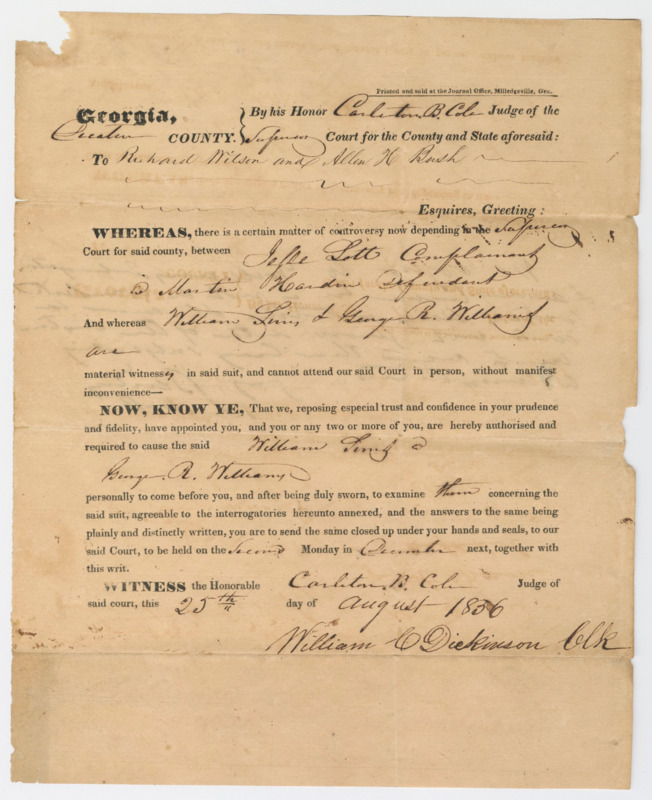 Printed and sold at the Journal Office, Milledgeville, Geo.
Georgia, } By his Honor Carleton B. Cole Judge of the
Decatur COUNTY. } Superior Court for the County and State aforesaid:
To Richard Wilson and Allen H Bush
Esquires, Greeting:
WHEREAS, there is a certain matter of controversy now depending in the Superior
Court for said county, between Jesse Lott Complainant
& Martin Hardin Defendant
And whereas William Sims & George R. Williams
are
material witnesses in said suit, and cannot attend our said Court in person, without manifest
inconvenience—
NOW, KNOW YE, That we, reposing especial trust and confidence in your prudence
and fidelity, have appointed you, and you or any two or more of you, are hereby authorised and
required to cause the said William Sims &
George R. Williams
personally to come before you, and after being duly sworn, to examine them concerning the
said suit, agreeable to the interrogatories hereunto annexed, and the answers to the same being
plainly and distinctly written, you are to send the same closed up under your hands and seals, to our
said Court, to be held on the Second Monday in December next, together with
this writ.
WITNESS the Honorable Carleton B. Cole Judge of
said court, this 25th day of August 1836
William C Dickinson Clk